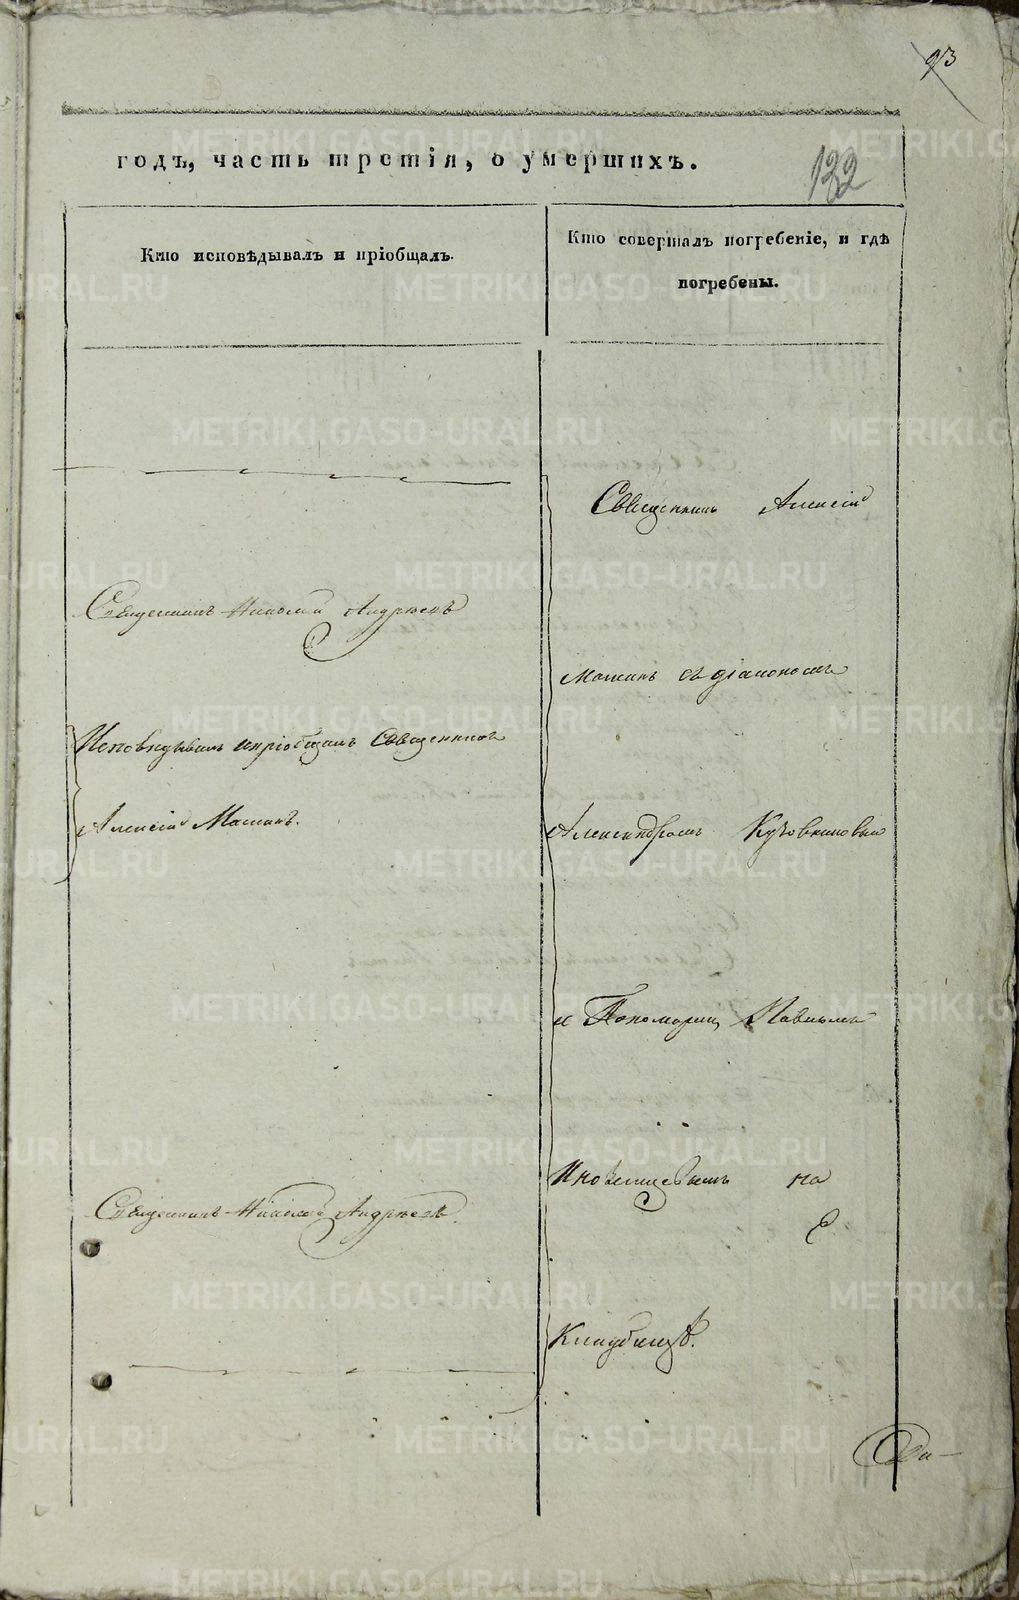 93
годъ, часть третія, о умершихъ.
122
Кто исповѣдывалъ и пріобщалъ.
Кто совершалъ погребеніе, и гдѣ
погребены.
Священникъ Алексій
Священникъ Николай Андреевъ
Машинъ съ діакономъ
Исповѣдывалъ и пріобщалъ священникъ
Алексій Машинъ.
Александромъ
и Пономаремъ Павломъ
Иноземцевымъ на
Священникъ Николай Андреевъ
Кладбищѣ.
METRIKI.GASO-URAL.RU